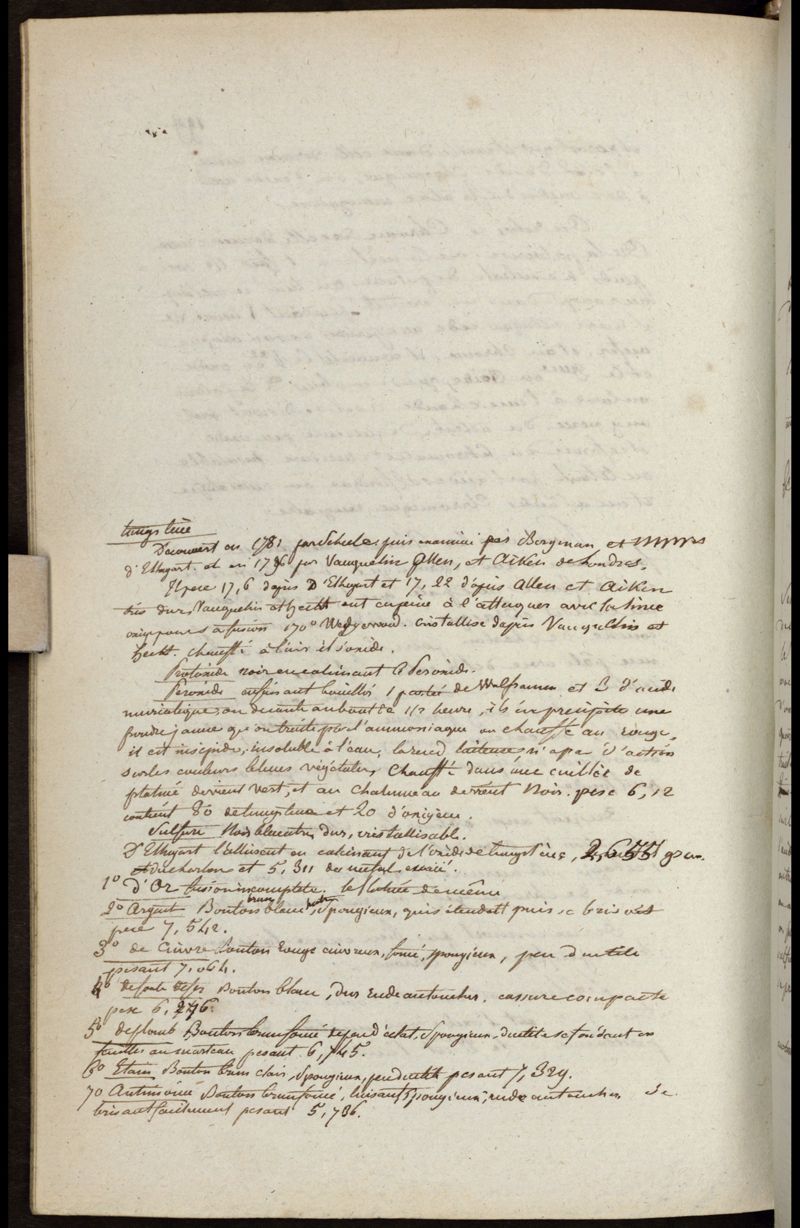 tungstene
Decouvert en 1781 par Schele, puis examiné par Bergman et
d'Elhuyart. et en 1796 par Vauquelin Allen, et Aiken de Londres.
Il pese 17,6 depuis D'Elhuyart et 17,22 d'apuis Allen et Aiken
très dur, Vauquelin et Hecht ont eu peine à l'attaquer avec la lime
exige pour sa fusion 170° Wedgerwood. cristallise depuis Vauquelin et
Hecht. chauffé à l'air il s'oxide.
Protoxide noir en calcinant le Peroxide.
Peroxide en faisant bouillir 1 partie de Wolframm et 3 d'acide
muriatique, on decante au bout de 1/2 heure, il s'en precipite une
poudre jaune qu'on traite par l'ammoniaque on chauffe au rouge,
il est insipide, insoluble à l'eau, n'a pas d'action
sur les couleurs bleues végétales, Chauffé dans une cuillèe de
platine devient vert, et au chalumeau devient Noir. pese 6,12
contient 80 de tungstene et 20 d'oxigene.
Sulfure Noir bleuatre dur, cristallisable.
D'Elhuyart l'allierent en calcinant de l'oxide de tungstène,
de charbon et du métal essaié.
1° d'Or fusion incomplete. le Platine de même
2° Argent Bouton brun blanc, spongieux, qui s'étendoit puis se brisoit
pese 7,542.
3° de Cuivre Bouton Rouge cuivreux, foncé, spongieux, peu ductile
pesant 7,064.
4° Bouton blanc, dur rude au toucher. cassure compacte
pese 6,
5° de plomb Bouton brun foncé de peu d'eclat, spongieux, ductile se fendant en
feuilles au marteau pesant 6,745.
6° Etain Bouton brun clair, spongieux, peu ductile pesant 7,329.
7° Antimoine Bouton brun foncé, luisant, spongieux, rude au toucher se
brisant facilement pesant 5,786.